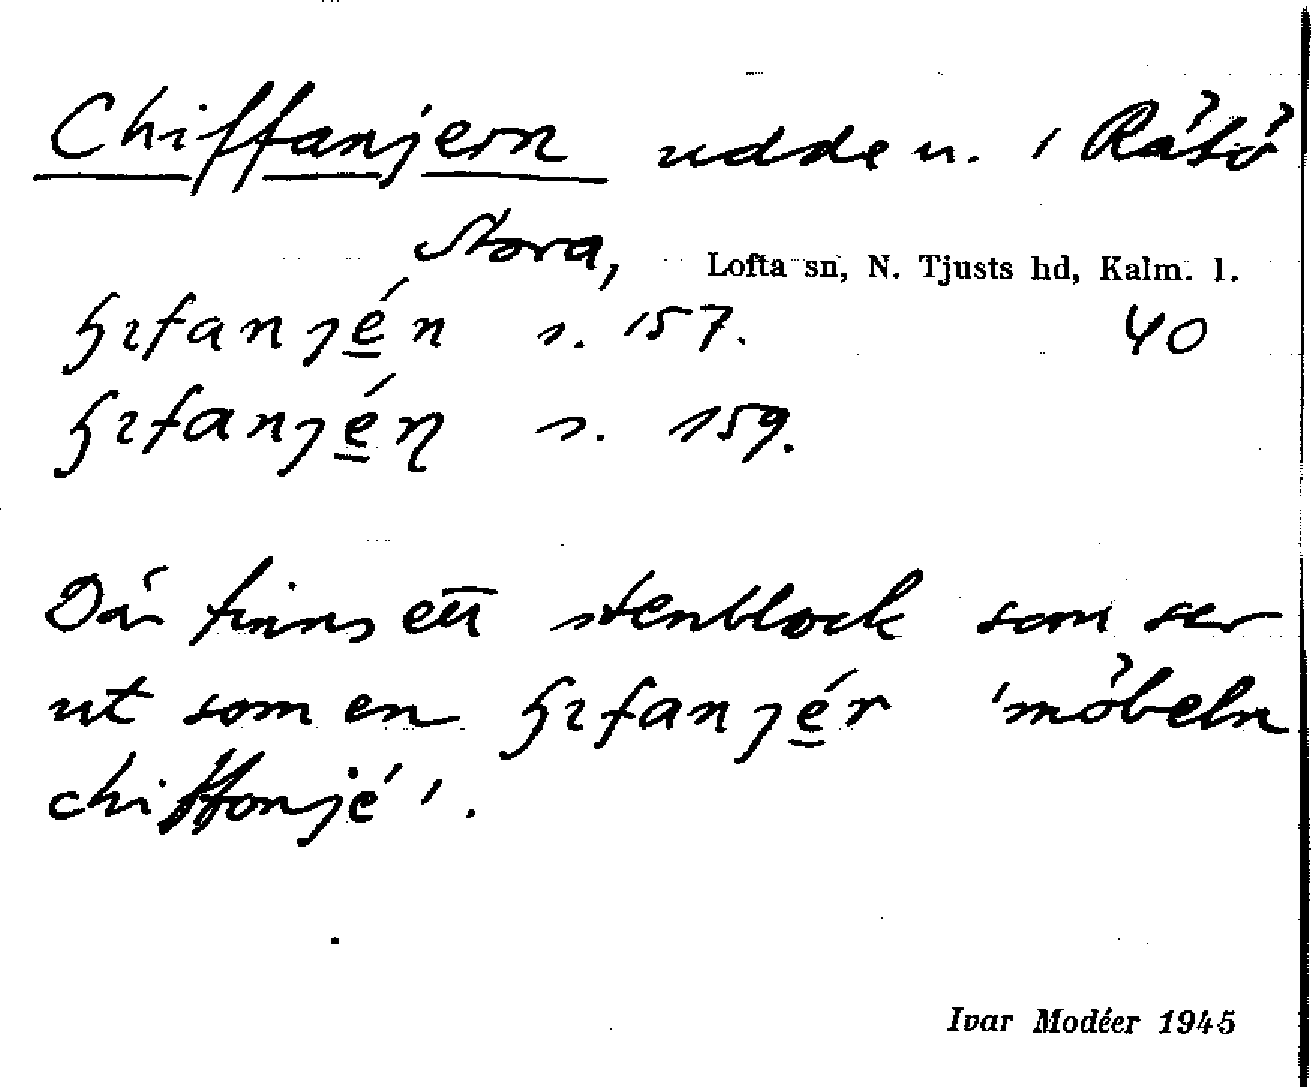 Chiffanjern udde n. i Råsö
Stora, Lofta sn, N. Tjusts hd, Kalm. l.
ɧɩfanȷén s. 157. 40
ɧɩfanȷén̥ s. 159.
Där finns ett stenblock som ser
ut som en ɧɩfanȷér 'möbeln
chiffonjé'.
Ivar Modéer 1945